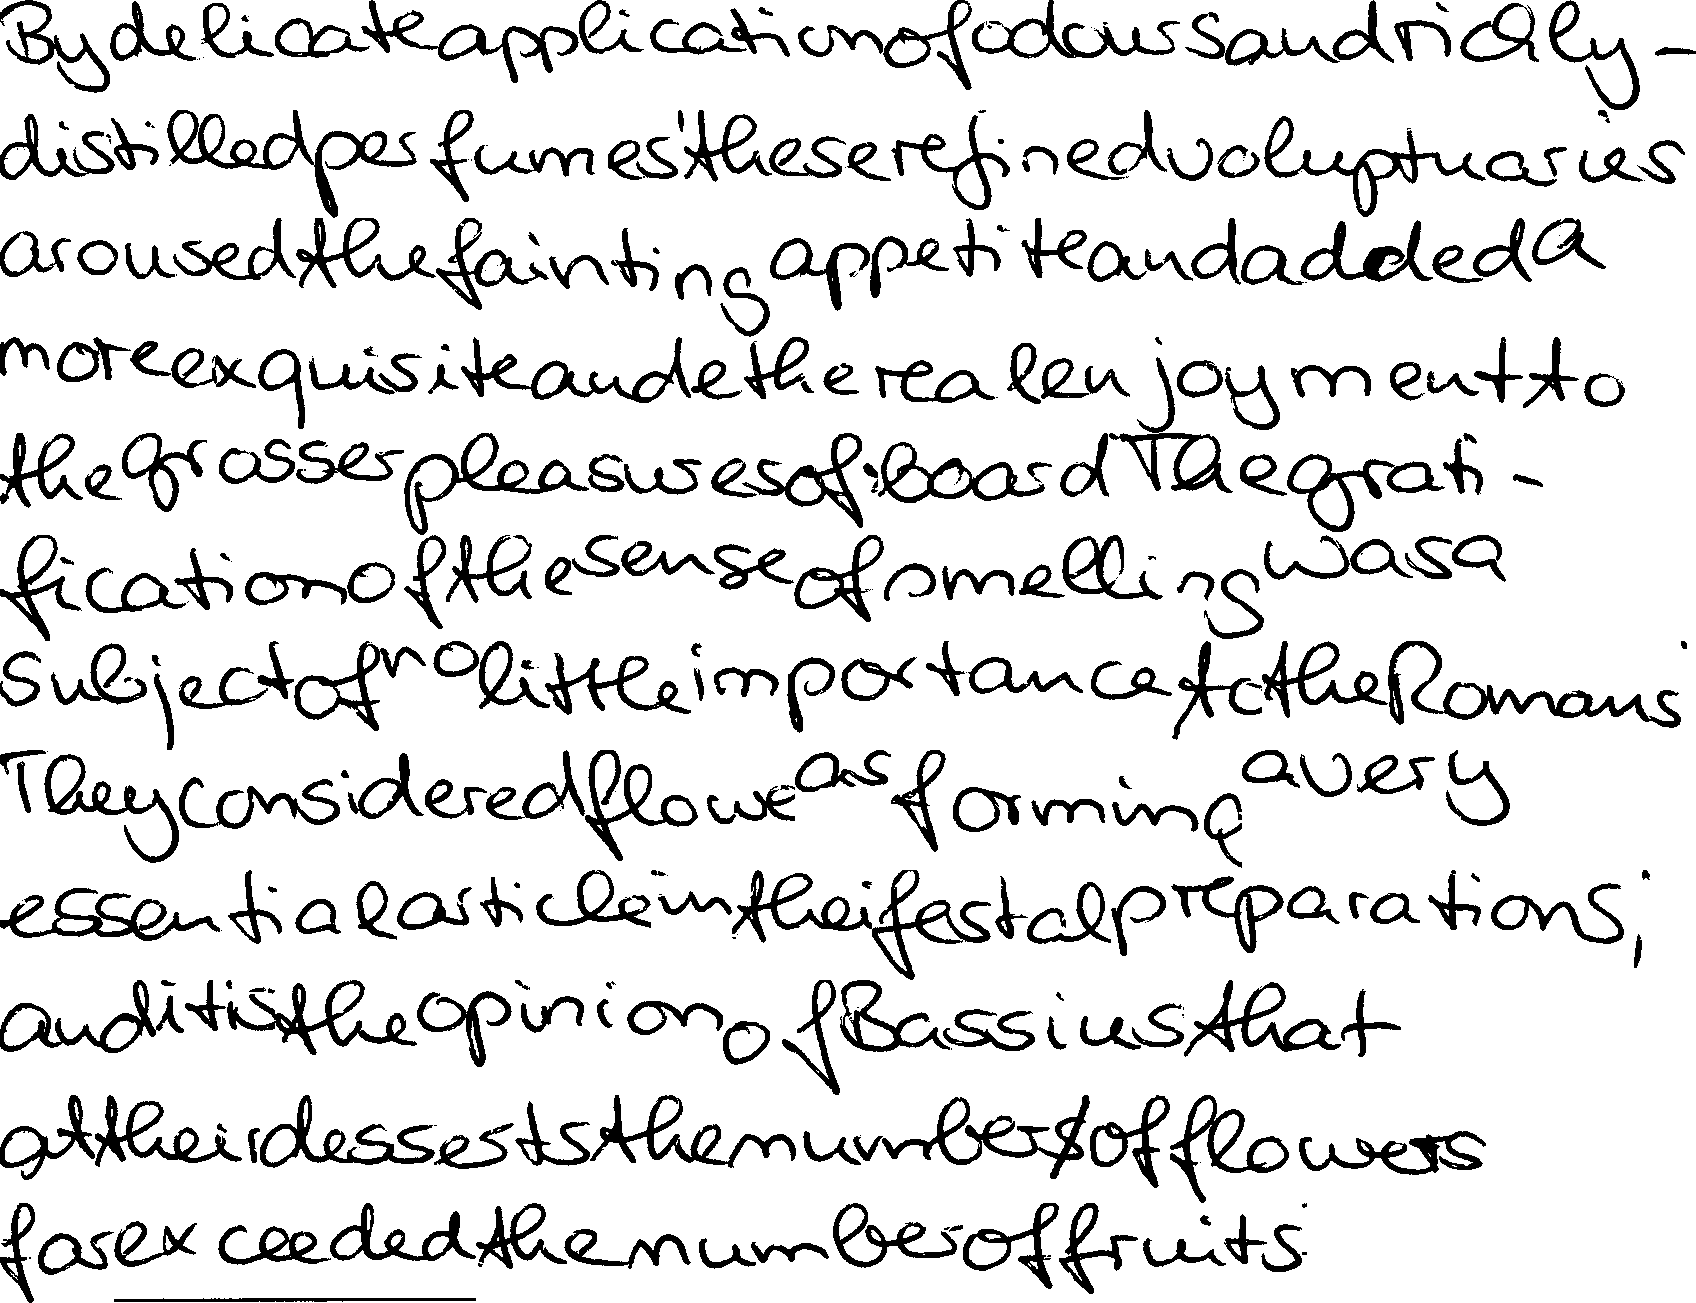 By delicate application of odours and richly-
distilled perfumes' these refined voluptuaries
aroused the fainting appetite and added a
more exquisite and ethereal enjoyment to
the grosser pleasures of board The grati-
fication of the sense of smelling was a
subject of no little importance to the Romans
They considered flowe as forming a very
essential article in thei festal preparations;
and it is the opinion of Bassius that
at their desserts the number of flowers
far exceeded the number of fruits